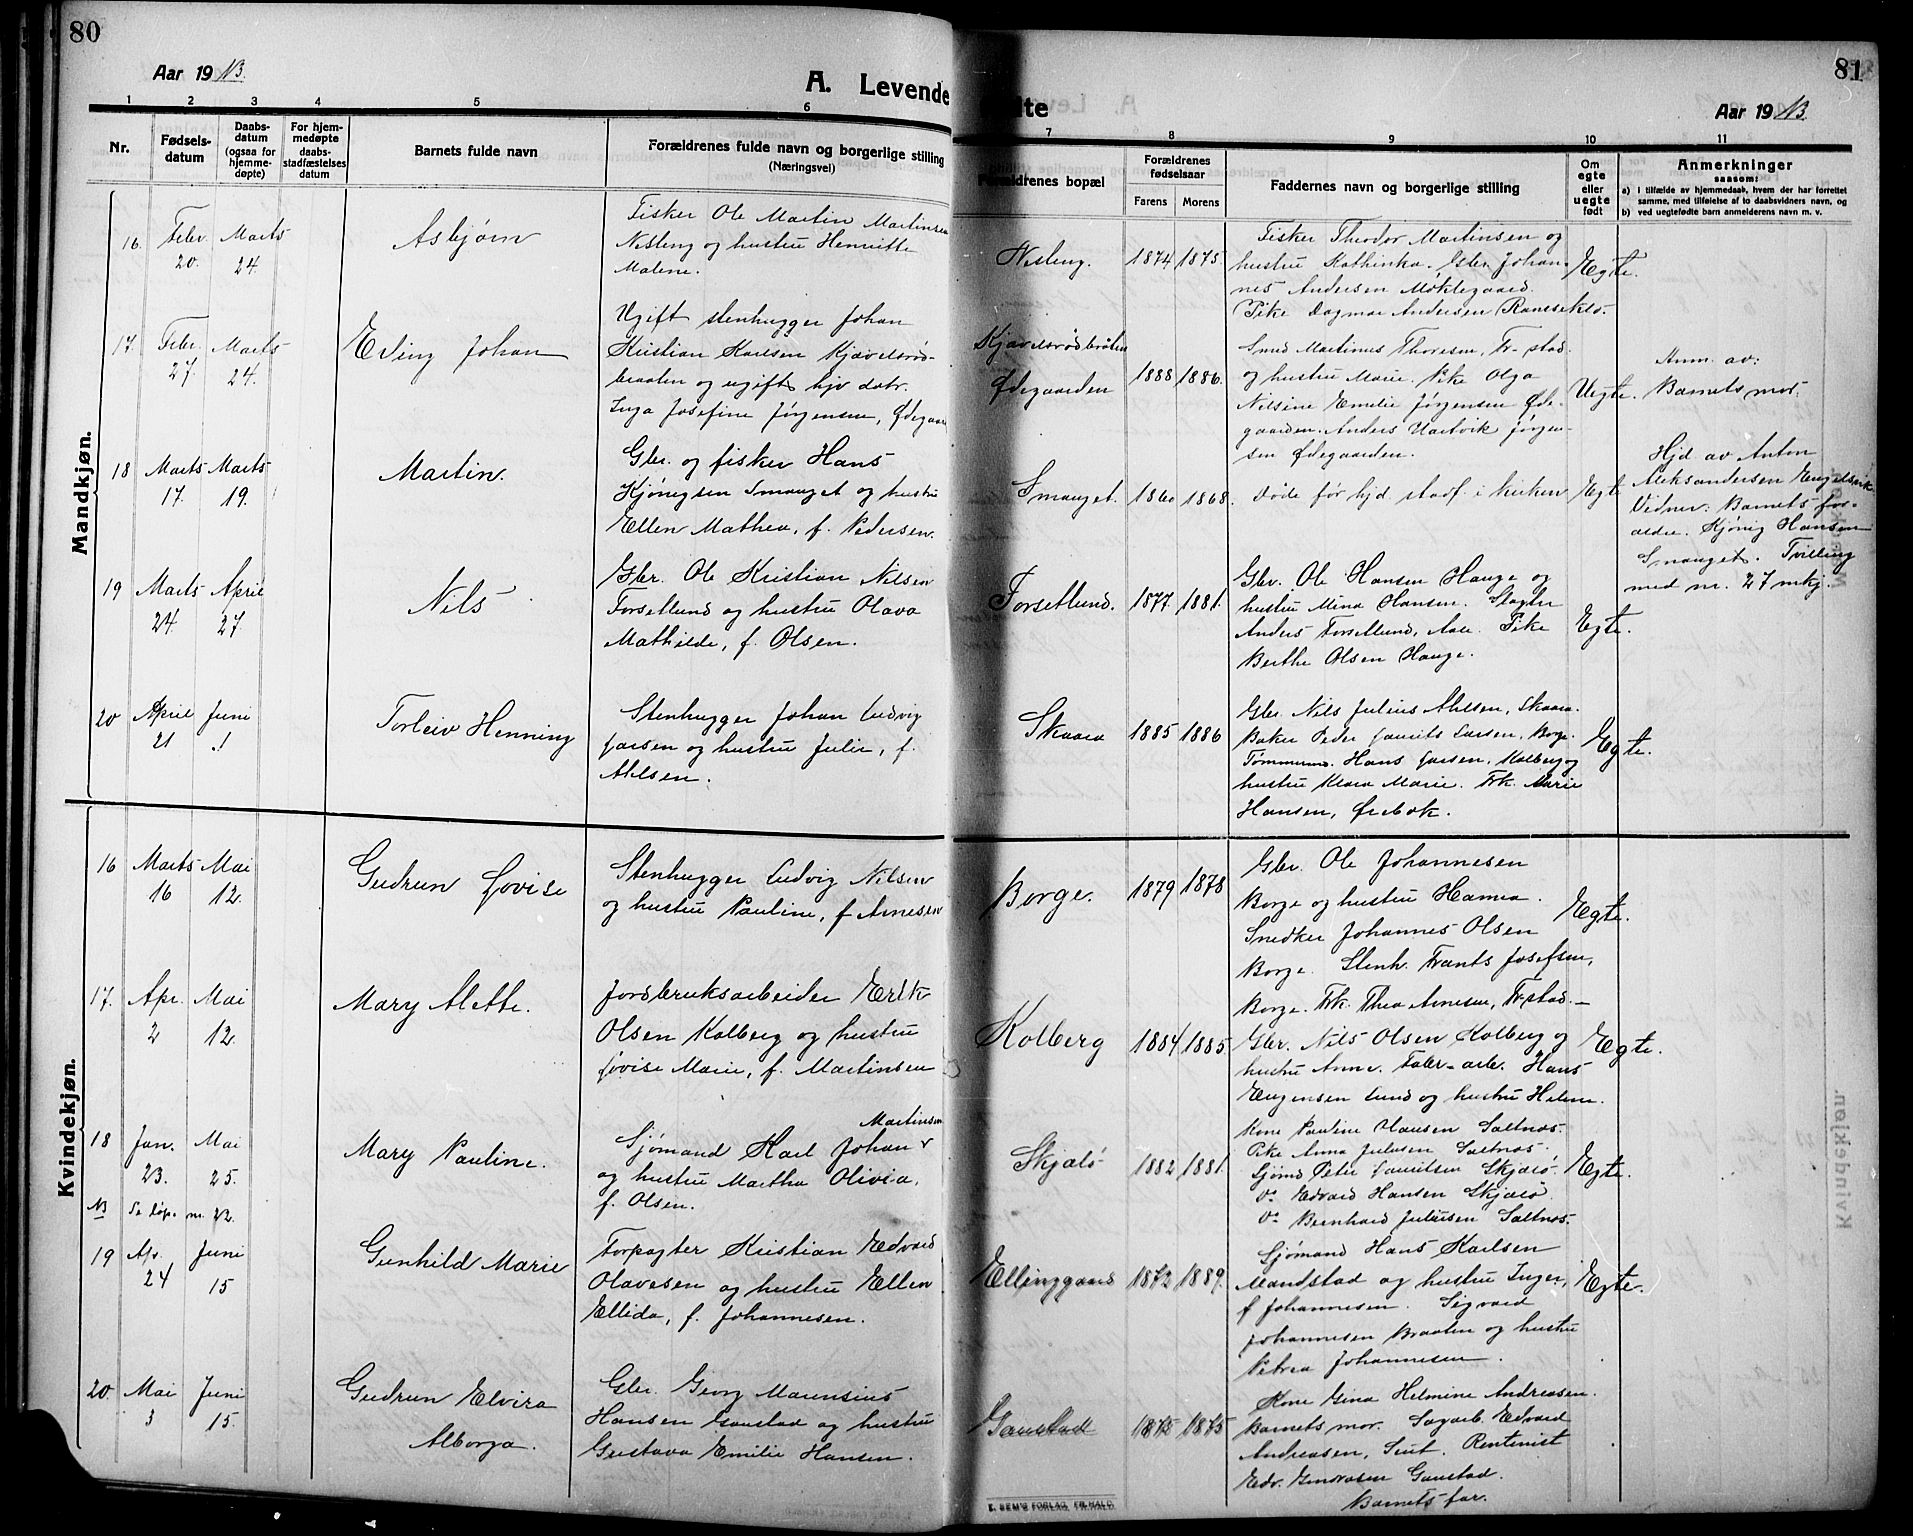 80
Aar 1913.
A. Levende
1 2 3 4 5 6
Nr.
Fødsels-
datum
Daabs-
datum
(ogsaa for
hjemme-
døpte)
For hjem-
medøpte
daabs-
stadfæstelses
datum
Barnets fulde navn
Forældrenes fulde navn og borgerlige stilling
(Næringsvei)
Mandkjøn.
16. Febr. 20. Marts 24 Asbjørn
Fisker Ole Martin Martinsen
Nesleng og hustru Henriette
Malene.
17. Febr. 27. Marts 24. Erling Johan
Ugift stenhugger Johan
Kristian Karlsen Kjævelsrød-
braaten og ugift hjv datr.
Inga Josefine Jørgensen, Ødegaar
18 Marts 17. Marts 19. Martin.
Gbr. og fisker Hans
Kjønigsen Smauget og hustru
Ellen Mathea, f. Pedersen.
19 Marts 24. April 27. Nils
Gbr. Ole Kristian Nilsen
Torsetlund og hustru Olava
Mathilde, f. Olsen.
20 April 21 Juni 1 Torleiv Henning
Stenhugger Johan Ludvig
Larsen og hustru Julie, f.
Ahlsen.
Kvindekjøn.
16 Marts 16 Mai 12. Gudrun Lovise
Stenhugger Ludvig Nilsen
og hustru Pauline, f Arnesen
17. Apr. 2 Mai 12. Mary Alette.
Jordbruksarbeider Erik
Olsen Kolberg og hustru
Lovise Marie, f. Martinsen
18 Jan. 23. Mai 25. Mary Pauline.
NB Se løpe nr. 22.
Martinsen
Sjømand Karl Johan
og hustru Martha Olivia,
f. Olsen.
19 Apr. 24 Juni 15 Gunhild Marie
Forpagter Kristian Edvard
Olavesen og hustru Ellen
Ellida, f. Johannesen.
20. Mai 3 Juni 15. Gudrun Elvira
Alborga.
Gbr. Georg Marensius
Hansen Gaustad og hustru
Gustava Emilie Hansen.
81
dte
Aar 1913.
7 8 9 10 11
Forældrenes bopæl
Forældrenes
fødselsaar
Farens Morens
Faddernes navn og borgerlige stilling
Om
egte
eller
uegte
født
Anmerkninger
saasom:
a) i tilfælde av hjemmedaab, hvem der har forrettet
samme, med tilføielse af to daabsvidners navn, og
b) ved uegtefødte barn anmelderens navn m. v.
Nesleng. 1874 1875. Egte.
Fisker Theodor Martinsen og
hustru Kathinka. Gbr. Johan-
nes Andersen Møklegaard.
Pike Dagmar Andersen Ramseklo.
Kjævelsrødbråten
Ødegaarden 1888 1886. Uegte.
Smed Martinus Thoresen, Fr-stad.
og hustru Marie. Pike Olga
Nilsine Emelie Jørgensen Øde-
gaarden. Anders Hartvik Jørgen-
sen Ødegaarden.
Anm. av:
Barnets mor.
Smauget. 1860 1868. Døde før hjd. stadf. i kirken Egte
Hjd av Anton
Aleksandersen Engelsvik.
Vidner: Barnets for-
ældre. Kjønig Hansen
Smauget. Tvilling
med nr. 27 mkj.
Torsetlund. 1877. 1881. Egte.
Gbr. Ole Hansen Hauge og
hustru Mina Hansen. Slagter
Anders Torsetlund, Aale. Pike
Berthe Olsen Hauge.
Skaara 1885 1886 Egte.
Gbr. Nils Julius Ahlsen, Skaara.
Baker Peder Laurits Larsen, Borge.
Tømmermd. Hans Larsen, Kolberg og
hustru Klara Marie. Frk. Marie
Hansen, Ørebæk.
Borge. 1879 1878 Egte.
Gbr. Ole Johannesen
Borge og hustru Hanna.
Snedker Johannes Olsen
Borge. Stenh. Frants Josefsen,
Borge. Frk. Thea Arnesen, Fr.stad.
Kolberg 1884 1885. Egte.
Gbr. Nils Olsen Kolberg og
hustru Anne. Fabr-arb. Hans
Eugensen Lund og hustru Helene.
Skjælø 1882 1881. Egte.
Kone Pauline Hansen Saltnes.
Pike Anna Juliusen Saltnes.
Sjømd Peter Lauritsen Skjælø.
Do Edvard Hansen Skjælø
Do Bernhard Juliusen Saltnes.
Ellinggaard 1872 1889. Egte.
Sjømand Hans Karlsen
Mandstad og hustru Inger,
f Johannesen. Sigvard
Johannesen Braaten og hustru
Petrea Johannesen.
Gaustad 1875 1875
Kone Gina Helmine Andreasen.
Barnets mor. Sagarb. Edvard
Andreasen, Seut. Rentenist
Edv. Gaustad.
Barnets far.
E. SEM'S FORLAG, FR.HALD.